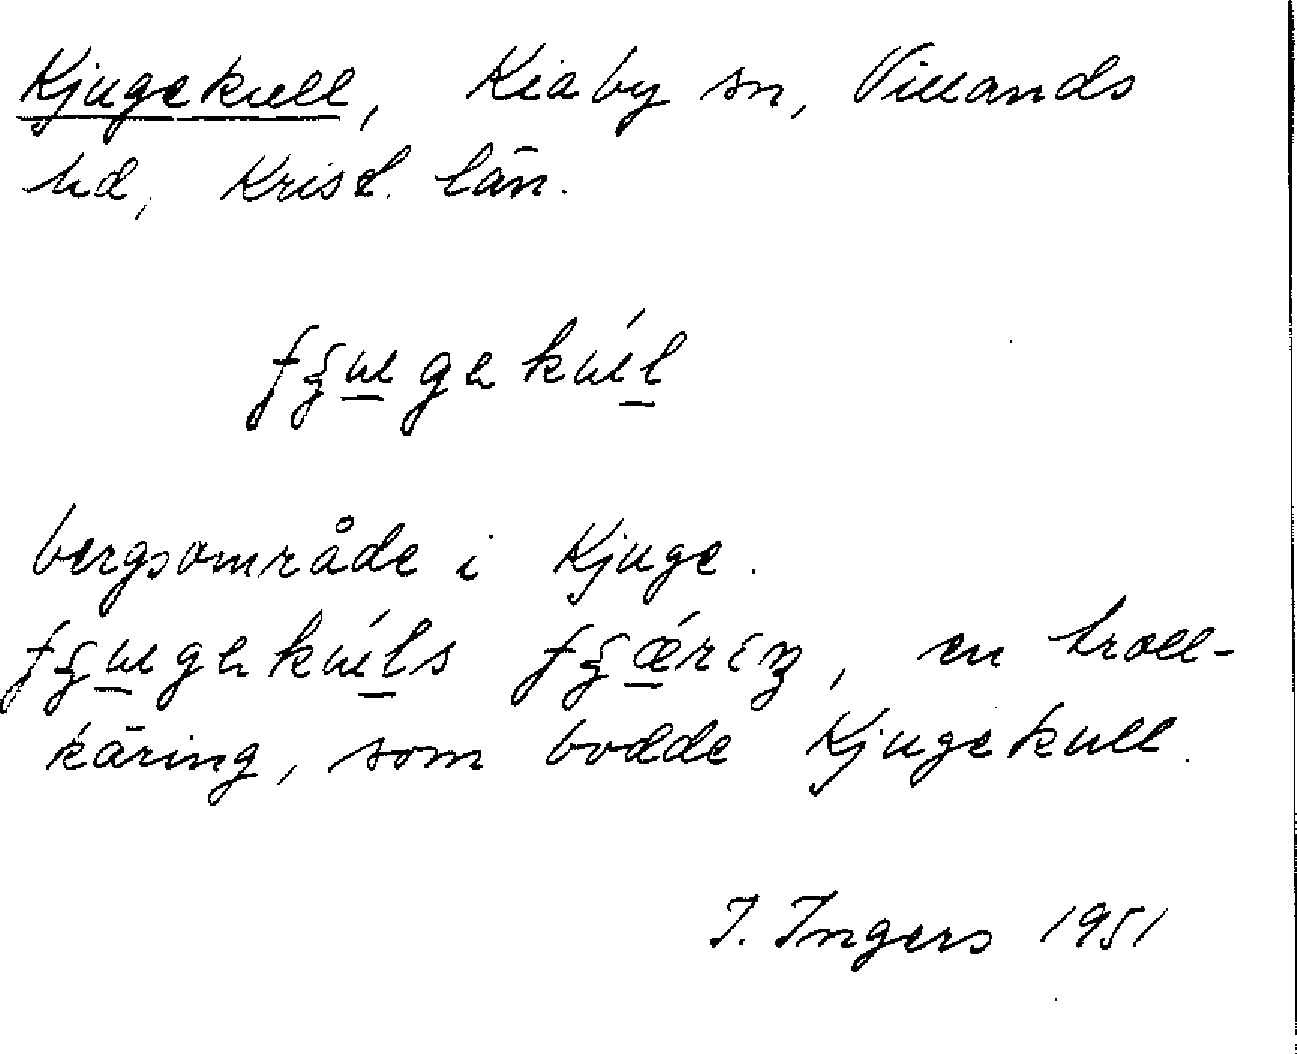 Kjugekull, Kiaby sn, Villands
hd, Krist. län.
bergsområde i Kjuge.
en troll-
käring, som bodde Kjugekull.
I. Ingers 1951